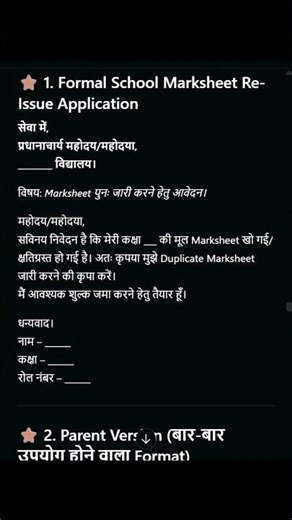 ⭐ 1. Formal School Marksheet Re-
Issue Application
सेवा में,
प्रधानाचार्य महोदय/महोदया,
______ विद्यालय।
विषय: Marksheet पुनः जारी करने हेतु आवेदन।
महोदय/महोदया,
सविनय निवेदन है कि मेरी कक्षा __ की मूल Marksheet खो गई/
क्षतिग्रस्त हो गई है। अतः कृपया मुझे Duplicate Marksheet
जारी करने की कृपा करें।
मैं आवश्यक शुल्क जमा करने हेतु तैयार हूँ।
धन्यवाद।
नाम – _____
कक्षा – _____
रोल नंबर – _____
⭐ 2. Parent Version (बार-बार
उपयोग होने वाला Format)